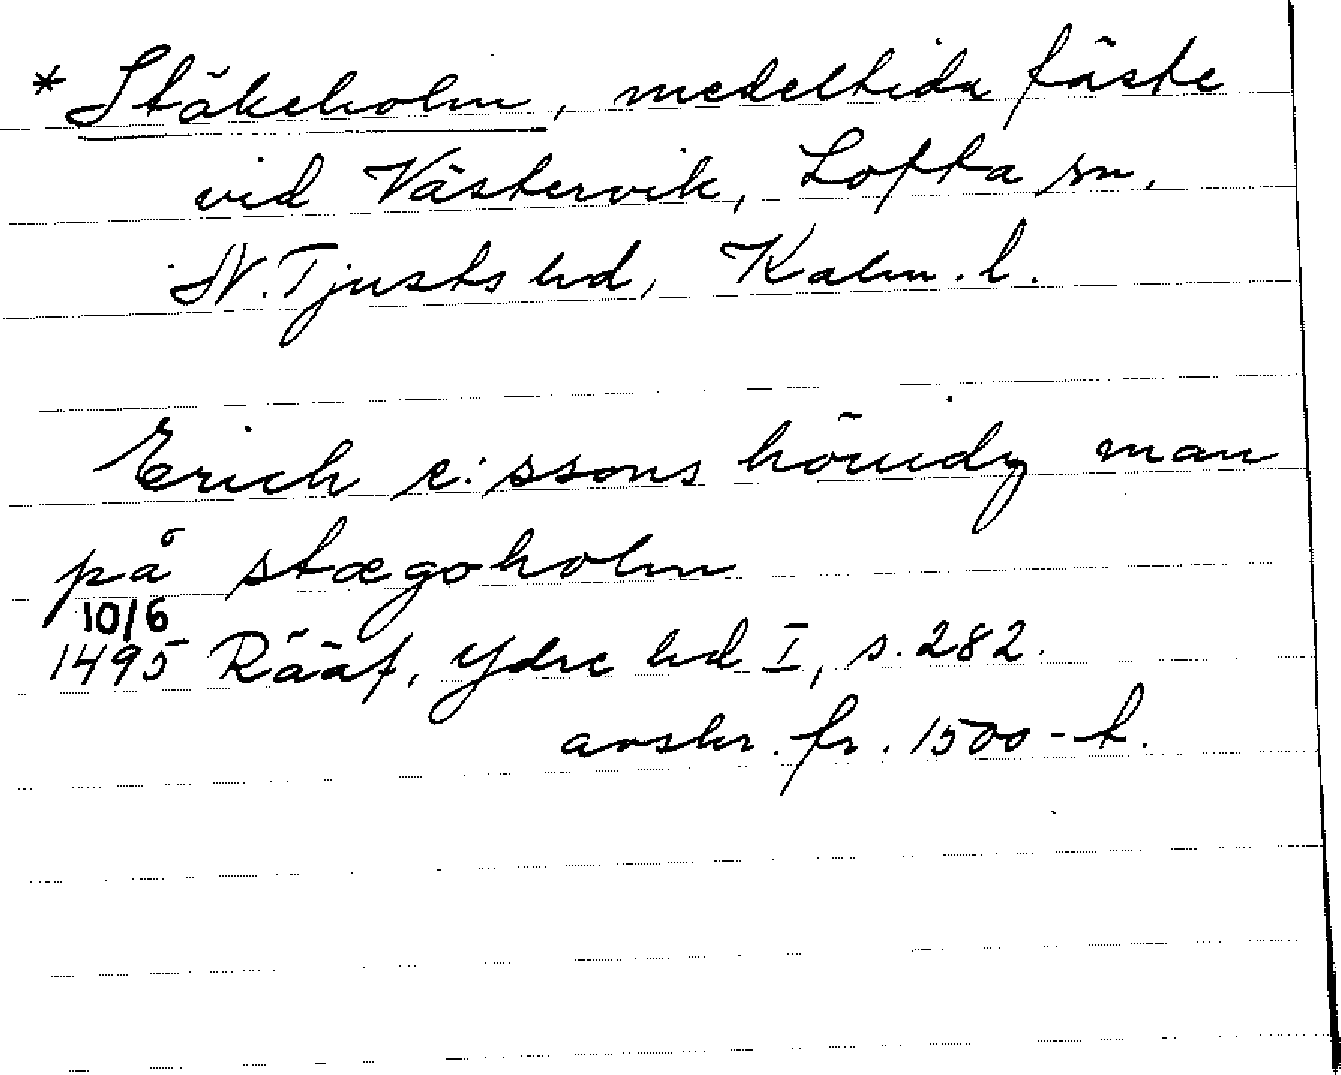 * Stäkeholm, medeltida fäste
vid Västervik, Lofta sn,
N. Tjusts hd, Kalm. l.
Erich e:ssons höuidz man
på stægoholm
10/6
1495 Rääf, Ydre hd I, s. 282.
avskr. fr. 1500-t.